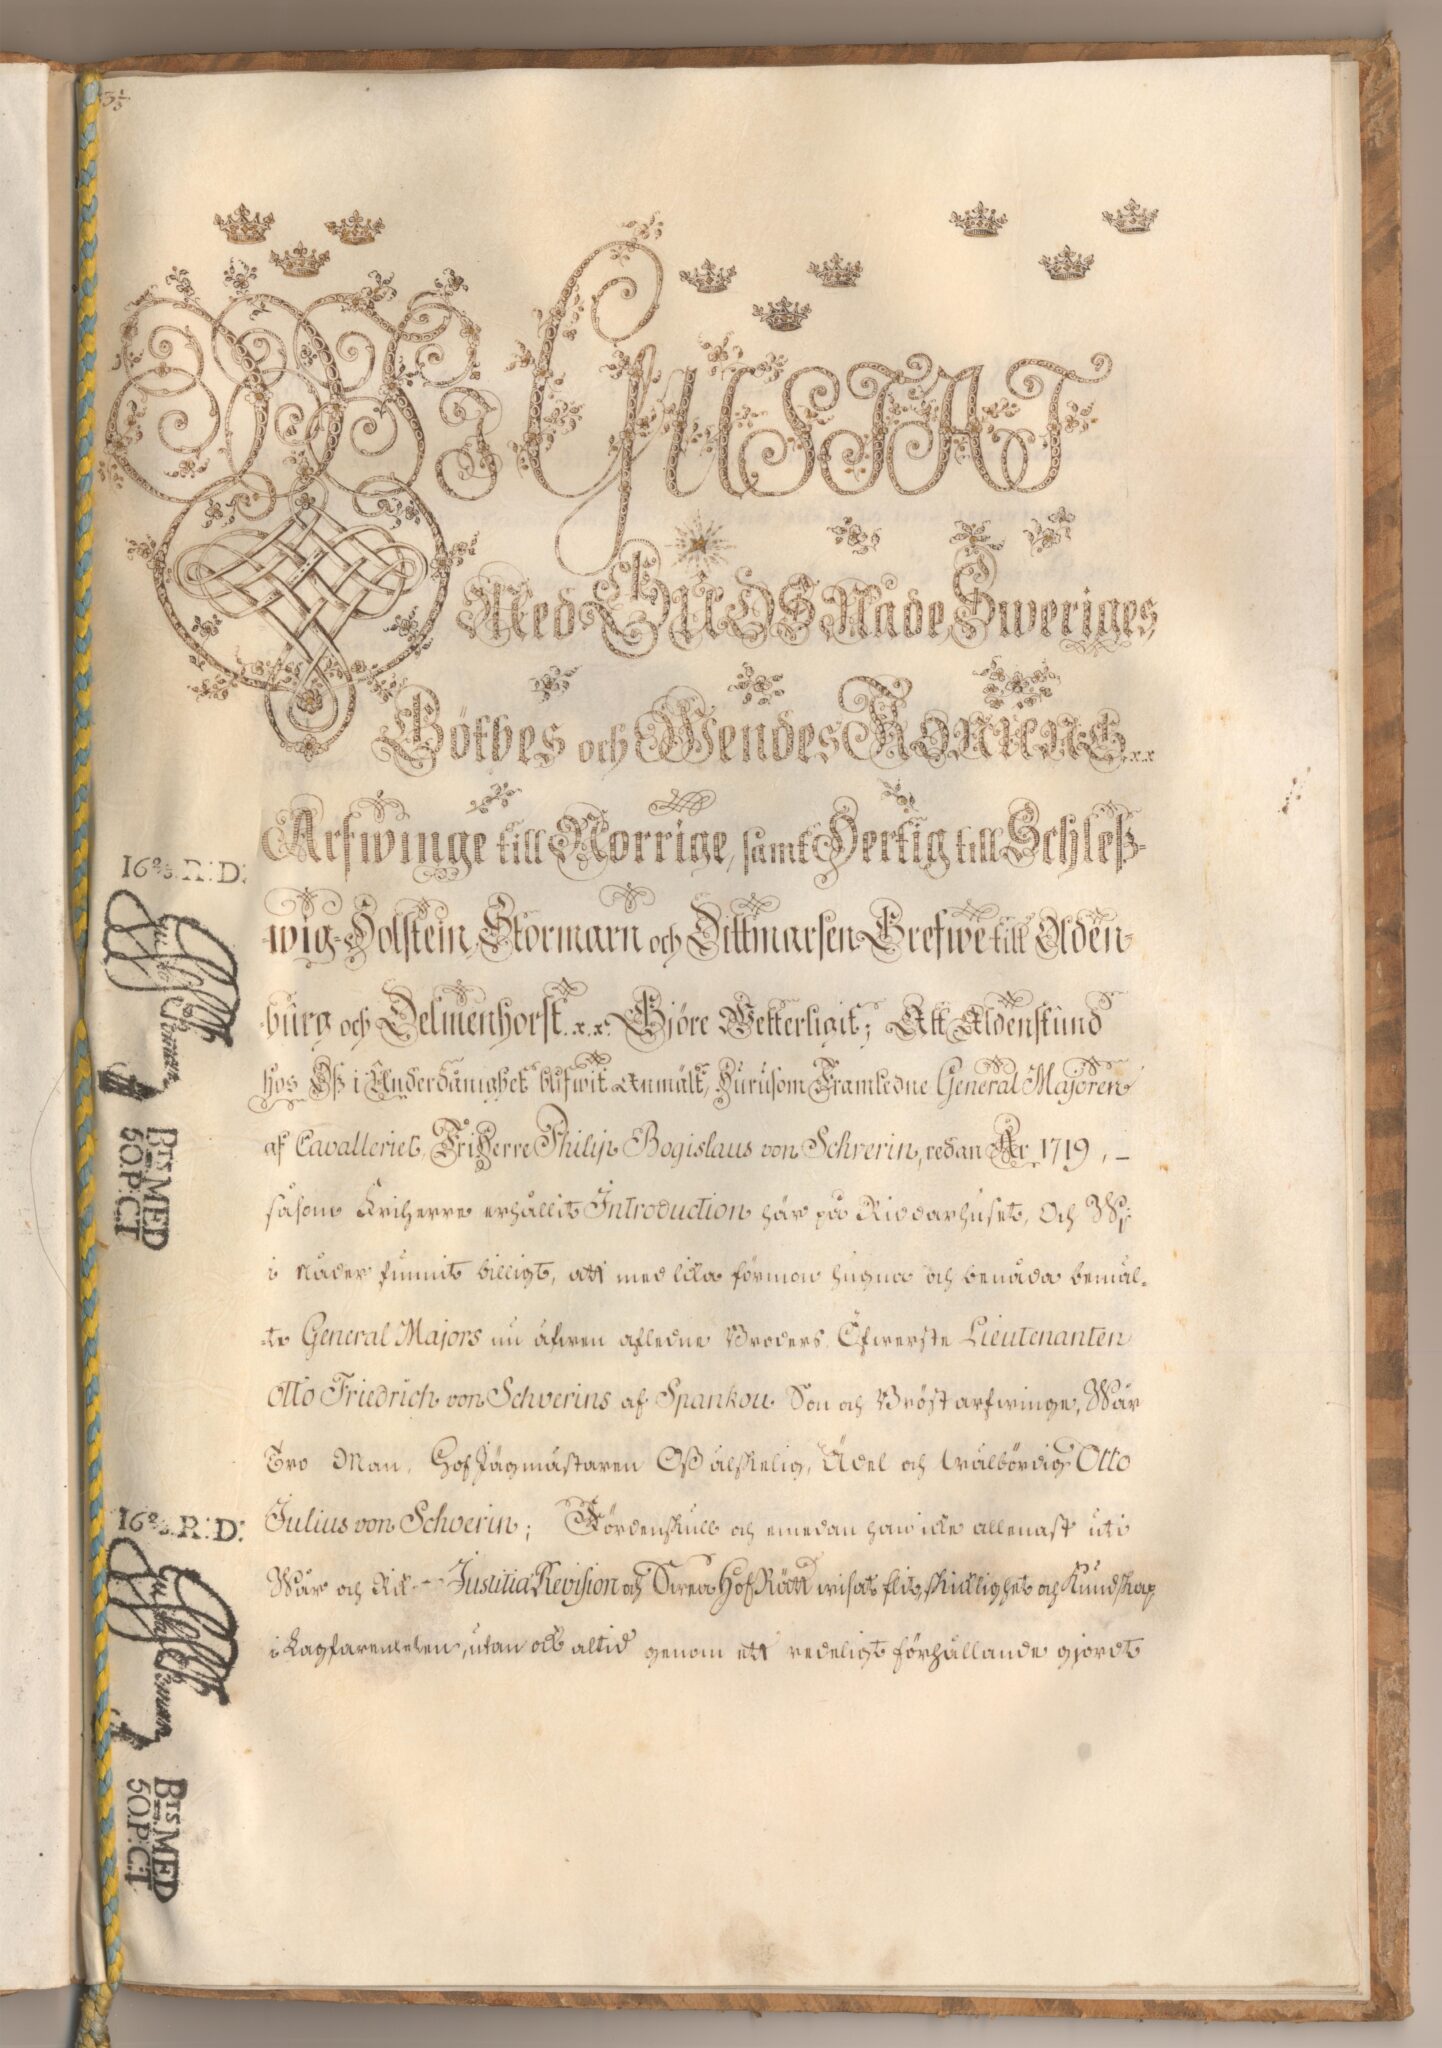 WJ GUSTAF
Med GUDS Nåde, Sweriges,
Göthes och Wendes KONUNG. x.x
Arfwinge till Norrige, samt Hertig till Schleß-
-wig-Holstein, Stormarn och Dittmarsen Grefwe till Olden-
-burg och Delmenhorst. x.x. Gjöre Wetterligit; Att Aldenstund
hos Oß i Underdånighet blifwit Anmält, Hurusom Framledne General Majoren
af Cavalleriet, Friherre Philip Bogislaus von Schverin, redan År 1719, –
såsom Friherre erhållit Introduction här på Riddarhuset, Och Wi
i Nåder funnit billigt, att med lika förmon hugna och benåda bemäl-
-te General Majors nu äfwen afledne Broders Öfwerste Lieutenanten
Otto Friedrich von Schverins af Spankou Son och Bröstarfwinge, Wår
Tro Man, HofJägmästaren Oß älskelig, Ädel och Wälbördig Otto
Julius von Schverin; Fördenskull och emedan han icke allenast uti
Wår och Rik Justitiæ Revision och Swea HofRätt wisat flit, skicklighet och Kundskap
i Lagfarenheten, utan ock altid genom ett redeligt förhållande gjordt
R: D:
BTS MED
50. P: CT
R: D:
BTS MED
50. P: CT